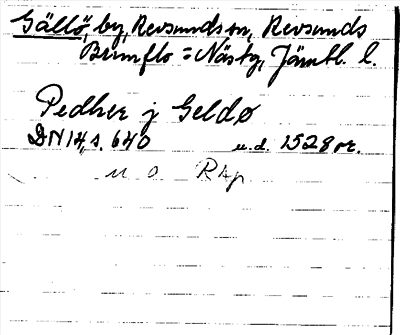 Gällö, by, Revsunds sn, Revsunds
Brunflo = Näsby, Jämtl. l.
Pedher j Geldø
DN 14, s. 640 u.d. 1528 or.
u o Rkp